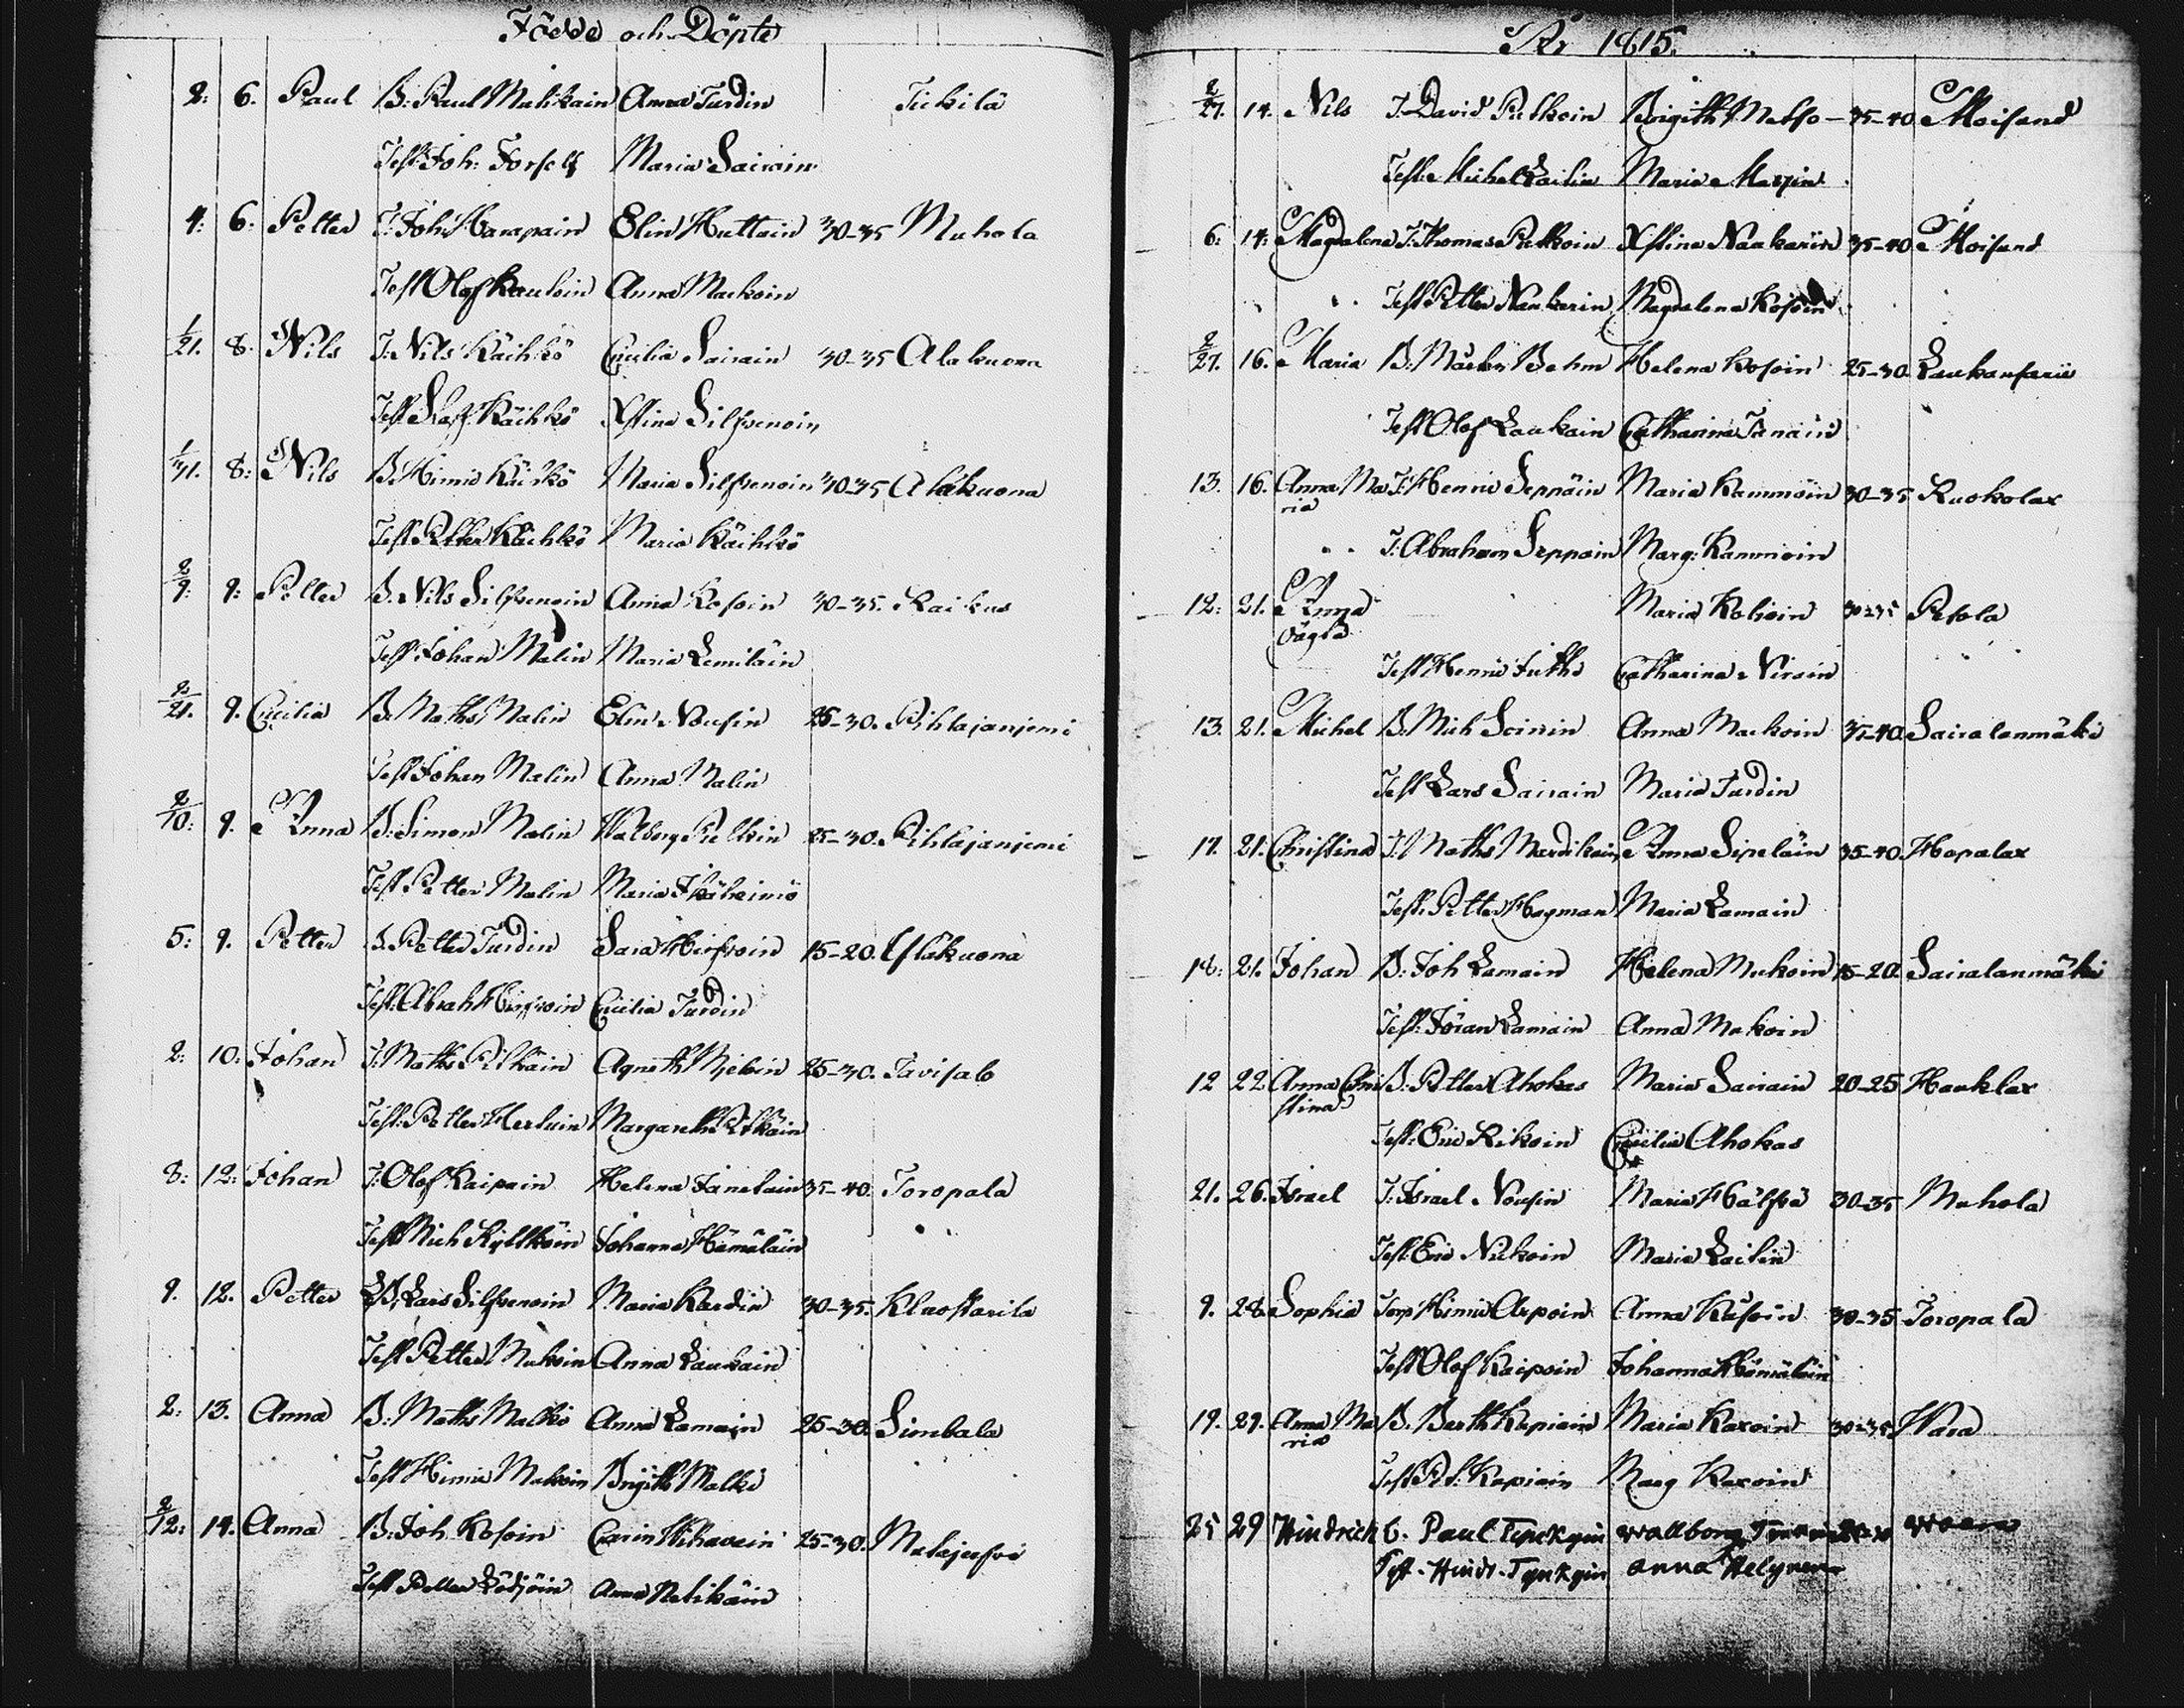 Födde och Döpte
2: 6. Paul B: Paul Matikain Anna Turdin Tiekilä
Test Joh: Forsell Maria Sairain
4: 6: Petter T: Joh Harapain Elin Huttain 30-35 Muhola
Test Olof Kauloin Anna Mackoin
1/21. 8. Nils T: Nils Käihkö Cicilia Sairain 30-35 Alakuona
Test Staff: Käihkö Xstina Silfvenoin
1/31. 8: Nils B: Hinric Käihkö Maria Silfvenoin 30-35 Alakuona
Test Petter Käihkö Maria Käihkö
2/9: 9: Petter B. Nils Silfvenoin Anna Kosoin 30-35. Raikus
Test Johan Malin Maria Lemiläin
2/21. 9. Cicilia B. Maths Malin Elin Nousin 25-30. Pihlajanjemi
Test Johan Malin Anna Malin
2/10: 9. Anna B: Simon Malin Walborg 25-30. Pihlajanjemi
Test Petter Malin Maria
5: 9. Petter B. Petter Turdin Sara Hirfvoin 15-20. Ylakuona
Test: Abrah Hirfvoin Cicilia Turdin
2: 10: Johan T: Maths Pitkäin Agneth 25-30. Tavisalo
Test: Petter Margaretha Pitkäin
8: 12: Johan T: Olof Kaipain Helena Janatain 35-40. Toropala
Test Mich Johanna Hämäläin
9. 12. Petter Lars Silfvenoin Maria Kardin 30-35.
Test Petter Mukoin Anna Laukain
2: 13. Anna B: Maths Malki Anna Lamain 25-30. Simbala
Test Hinric Makoin Brigitha Malki
2/12: 14. Anna B: Joh. Kosoin Carin Wihavain 25-30.
Test Petter Anna
År 1815.
2/27. 14. Nils T: David Putkoin Brigitha Metso - 35-40 Moisand
Test: Michel Lailin Maria
6: 14: Magdalena T: Thomas Putkoin Xstina Naukarin 35-40 Moisand
Test Petter Naukarin Magdalena Kosoin
2/27. 16. Maria B: Behm Helena Kosoin 25-30. Laukansaari
Test Olof Laukain Catharina
13. 16. Anna Ma T: Henric Seppäin Maria Kammoin 30-35 Ruokolax
ria
T: Abraham Seppain Marg: Kammoin
12: 21. Anna Maria Kolioin 30-35
Oägta
Test Henric Catharina Niroin
13. 21. Michel B: Mich Anna Mackoin 35-40 Sairalanmäki
Test Lars Sairain Maria Turdin
17. 21. Christina T: Maths Mardikain Anna Sipeläin 35-40 Hapalax
Test. Petter Hagman Maria Lamain
18: 21. Johan B: Joh Lamain Helena Mukoin 15-20. Sairalanmäki
Test: Jöran Lamain Anna Mukoin
12 22. Anna Chri B: Petter Ahokas Maria Sairain 20-25 Hauklax
stina
Test: Eric Rikoin Cicilia Ahokas
21. 26. Israel T: Israel Nousin Maria Hälfvä 30-35 Muhola
Test: Eric Nickoin Maria Lailin
9. 28. Sophia Torp Hinric Arpoin Anna Käsoin 30-35 Toropala
Test Olof Kaipoin Johanna Hämäläin
19. 29. Anna Ma B. Barth Kapiain Maria Karoin 30-35 Wara
ria
Test P: Kapiain Marg Karoin
25 29 Hindrich b. Paul Tynkyin wallborg
Tst. Hindr. Tynkyin anna